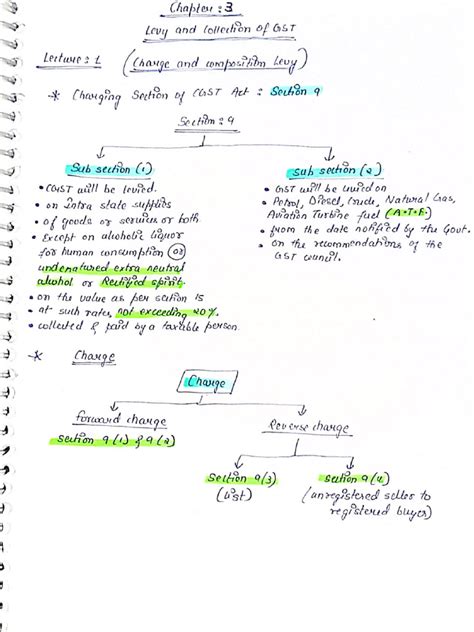 Chapter : 3
Levy and Collection of GST
Lecture : 1 (Charge and composition Levy)
* Charging Section of CGST Act : Section 9
Section : 9
Sub section (1)
• CGST will be levied.
• on Intra state supplies
• of goods or services or both
• Except on alcoholic liquor
for human consumption or
undenatured extra neutral
alcohol or Rectified spirit.
• on the value as per section 15
• at such rates, not exceeding 20%.
• collected & paid by a taxable person.
Sub section (2)
• GST will be levied on
• Petrol, Diesel, Crude, Natural Gas,
Aviation Turbine fuel (A.T.F.)
• from the date notified by the Govt.
• on the recommendations of the
GST council.
* Charge
Charge
forward charge
section 9 (1) & 9 (2)
Reverse charge
Section 9(3)
(List)
Section 9(4)
(unregistered seller to
registered buyer)